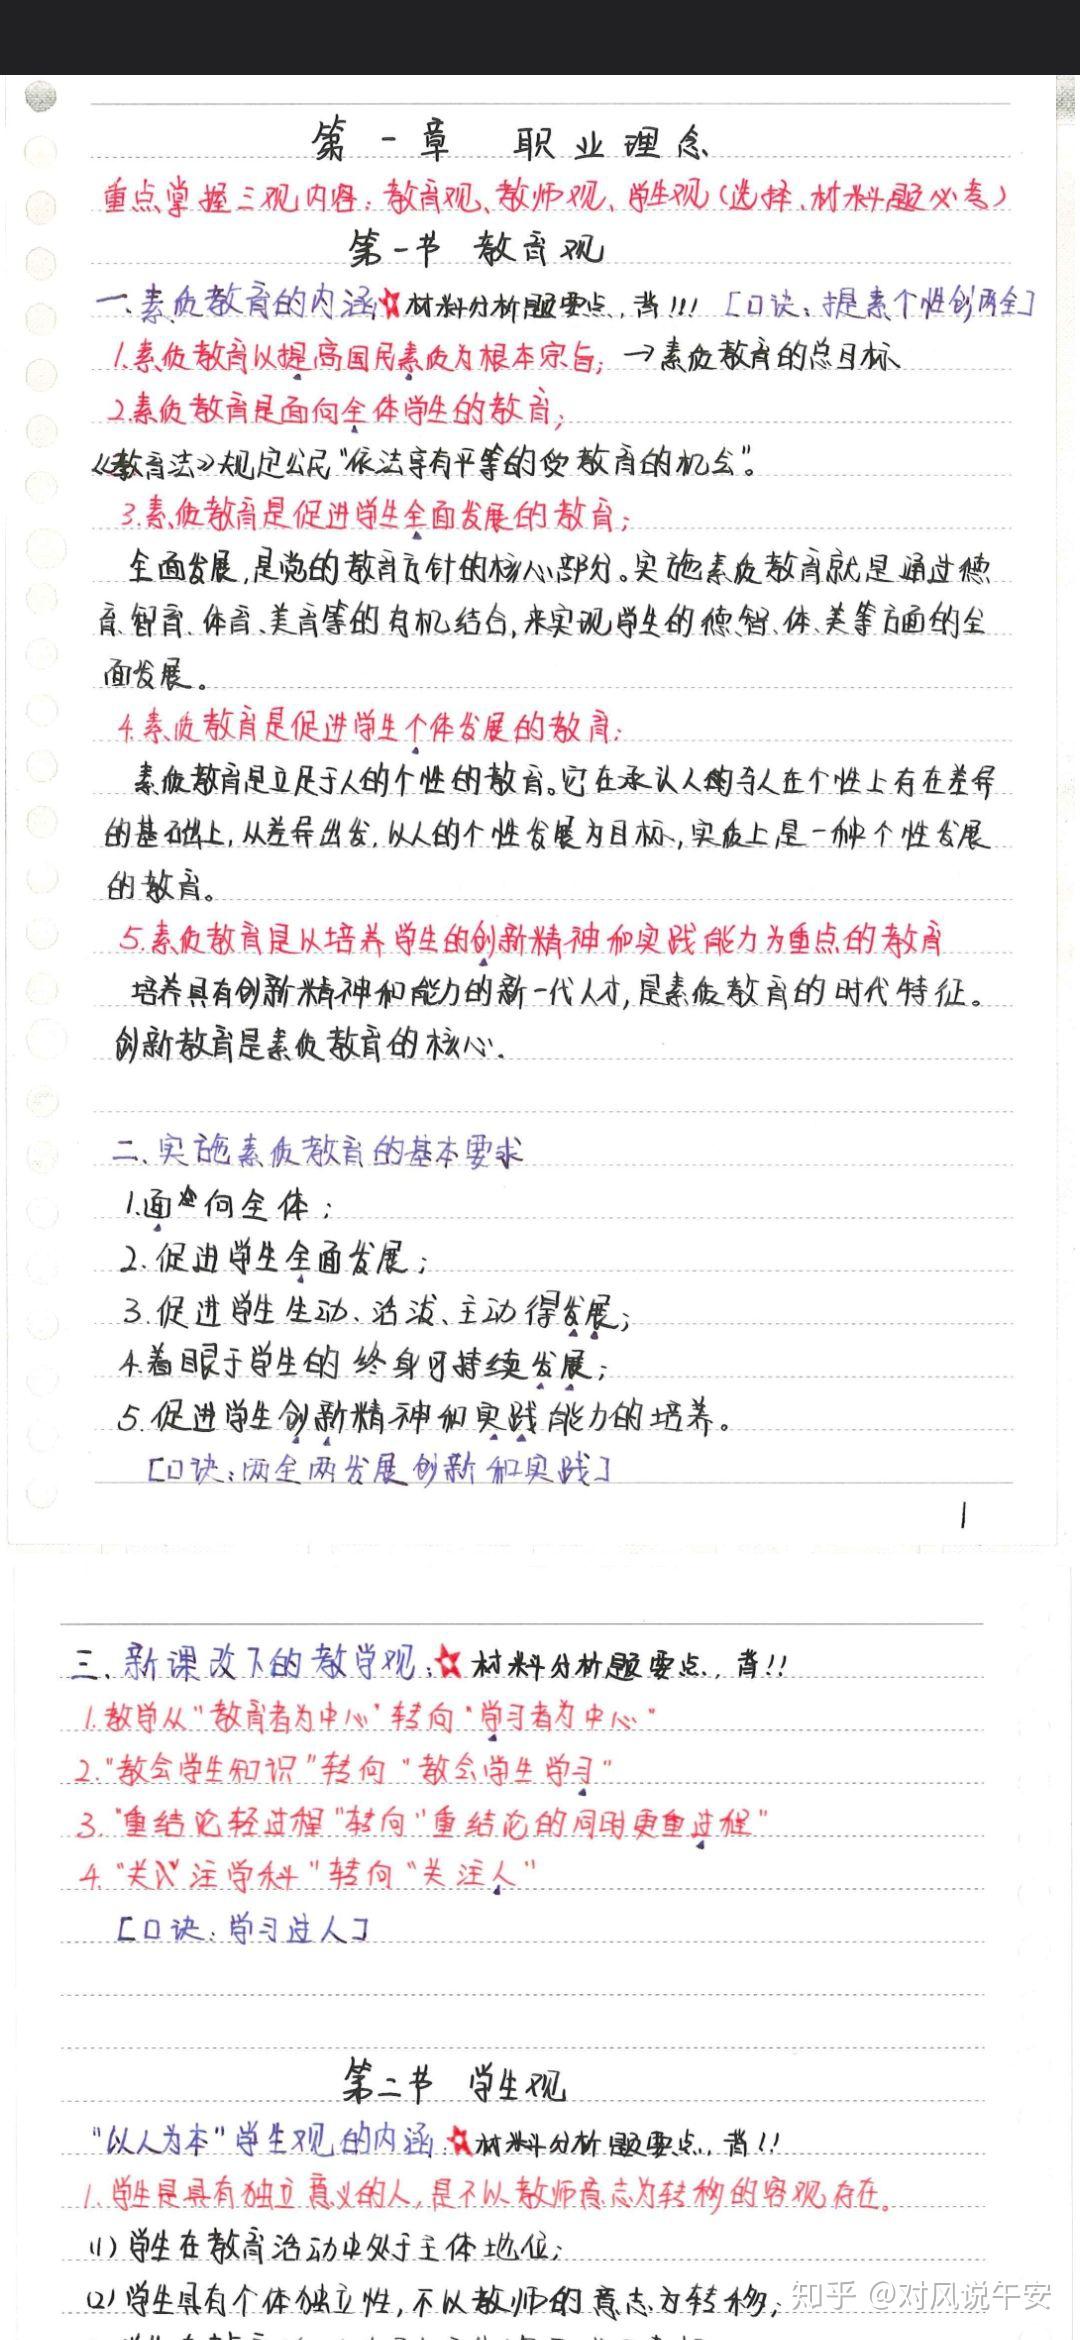 第一章 职业理念
重点掌握三观内容：教育观、教师观、学生观（选择、材料题必考）
第一节 教育观
一、素质教育的内涵：材料分析题要点，背!!! [口诀：提素个性创两全]
1.素质教育以提高国民素质为根本宗旨；→素质教育的总目标
2.素质教育是面向全体学生的教育；
《教育法》规定公民“依法享有平等的受教育的机会”。
3.素质教育是促进学生全面发展的教育；
全面发展，是党的教育方针的核心部分。实施素质教育就是通过德
育、智育、体育、美育等的有机结合，来实现学生的德、智、体、美等方面的全
面发展。
4.素质教育是促进学生个体发展的教育；
素质教育是立足于人的个性的教育。它在承认人与人在个性上存在差异
的基础上，从差异出发，以人的个性发展为目标，实质上是一种个性发展
的教育。
5.素质教育是以培养学生的创新精神和实践能力为重点的教育
培养具有创新精神和能力的新一代人才，是素质教育的时代特征。
创新教育是素质教育的核心.
二、实施素质教育的基本要求
1.面向全体；
2.促进学生全面发展；
3.促进学生生动、活泼、主动得发展；
4.着眼于学生的终身可持续发展；
5.促进学生创新精神和实践能力的培养。
[口诀：两全两发展创新和实践]
1
三、新课改下的教学观：材料分析题要点，背!!
1.教学从“教育者为中心”转向“学习者为中心”
2.“教会学生知识”转向“教会学生学习”
3.“重结论轻过程”转向“重结论的同时更重过程”
4.“关注学科”转向“关注人”
[口诀：学习过人]
第二节 学生观
“以人为本”学生观的内涵：材料分析题要点，背!!
1.学生是具有独立意义的人，是不以教师意志为转移的客观存在。
(1)学生在教育活动中处于主体地位；
(2)学生具有个体独立性，不以教师的意志为转移；
知乎 @对风说午安